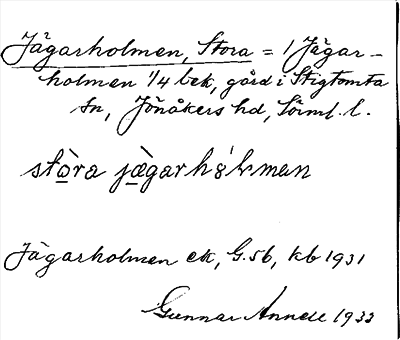 Jägarholmen, Stora = 1 Jägar-
holmen 1/4 bek, gård i Stigtomta
sn, Jönåkers hd, Sörml. l.
stòra jä̀garhólmen
Jägarholmen ek, G. sb, kb 1931
Gunnar 1933